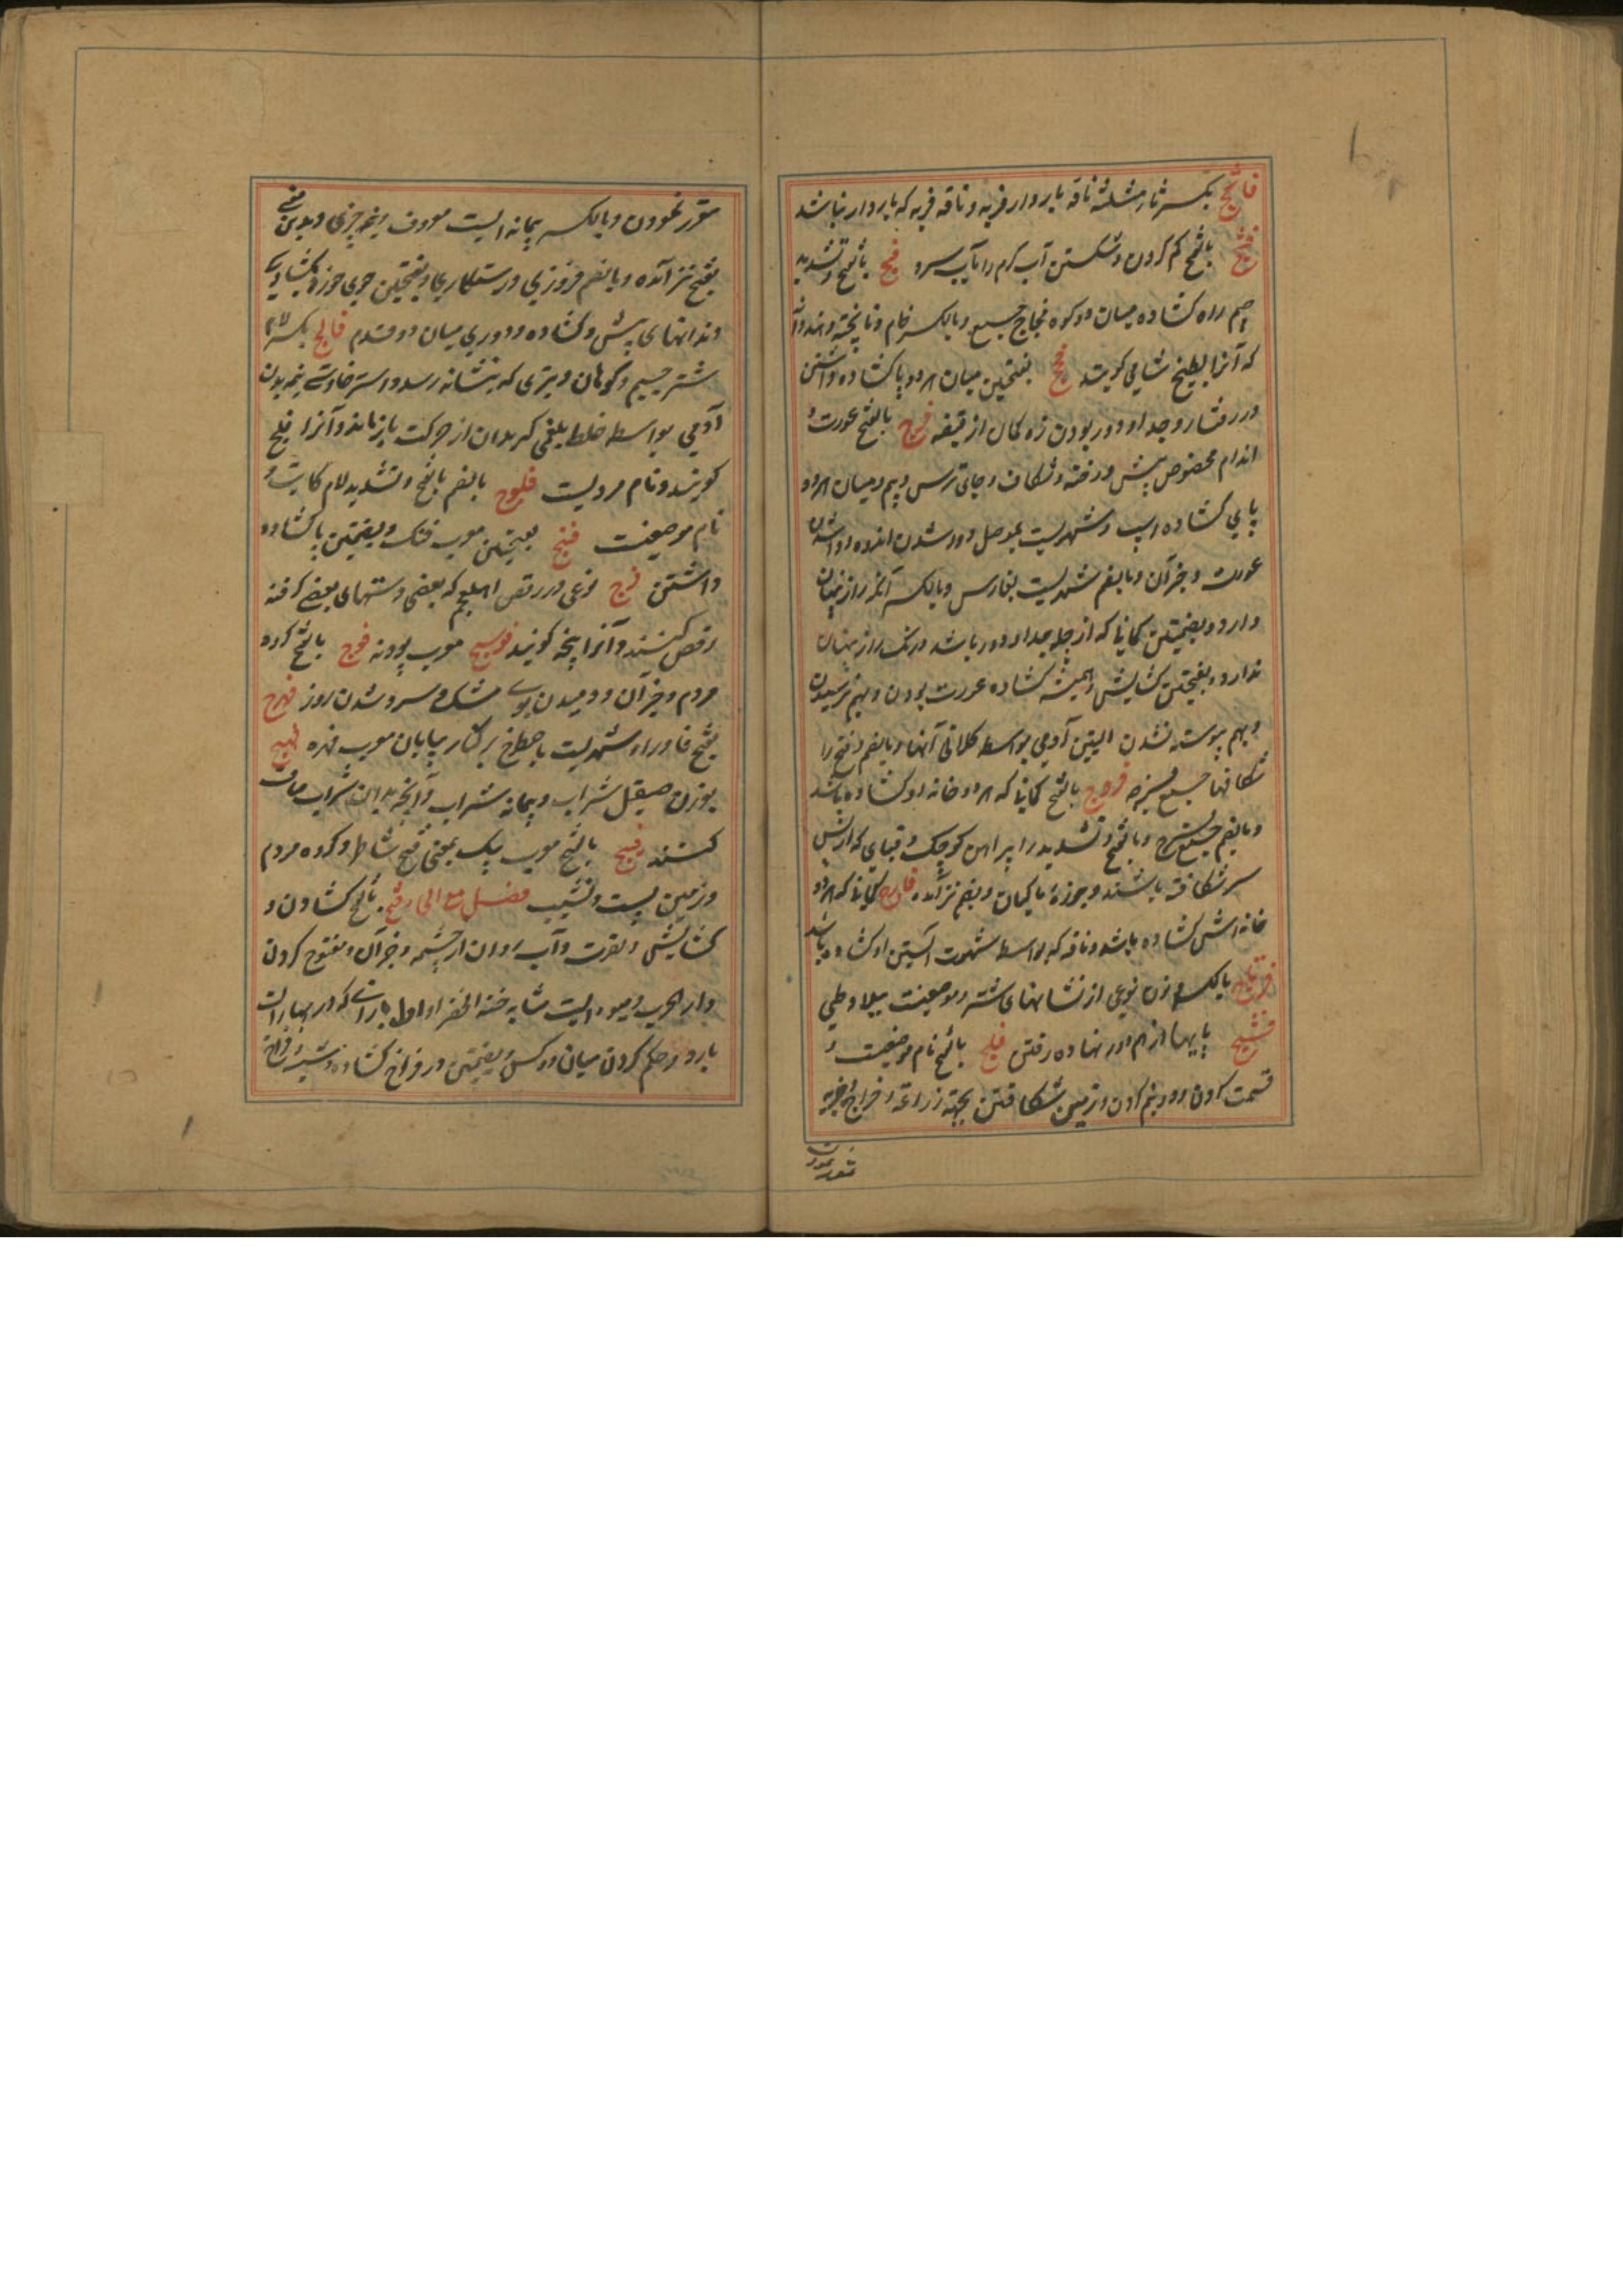 فاثج بکسر ثاء مثلثه ناقه باردار فربه و ناقه فربه که باردار نباشد
فثج بالفتح کم کردن و شکستن آب گرم را بآب سرد فج بالفتح و تشدید
جیم راه کشاده میان دو کوه فجاج جمیع و بالکسر خام و ناپخته و هندوانه
که آنرا بطیخ شامی کویند فجج بفتحتین میان هر دو پا کشاده داشتن
در رفتار و جدا و دور بودن زه کمان از قبضه فرج بالفتح عورت و
اندام مخصوص پیش و رخنه و شکاف و جای ترس و بیم و میان هر دو
پای کشاده اسپ و شهریست بموصل و دور شدن اندوه و واشدن
عورت و جز آن و بالضم شهریست بفارس و بالکسر آنکه راز پنهان
دارد و بضمتین کمانیا که از چله جدا و دور باشد و آنکه راز پنهان
ندارد و بفتحتین کشایش و همیشه کشاده عورت بودن و بهم نرسیدن
و بهم پیوسته نشدن الیتین آدمی بواسطه کلانی آنها و بالضم و فتح را
شکافها جمیع فرجه فروج بالفتح کمانیا که هر دو خانه او کشاده باشد
و بالضم جمیع فرج و بالفتح و تشدید را پیراهن کوچک و قبای که از پس
سر شکافته باشند و چوزهٔ ماکیان و بضم نیز آمده فارج کمانیا که هر دو
خانه اش کشاده باشد و ناقه که بواسطه شهوت الیتین او کشاده باشد
فرتاج بالکسر و زن نوعی از نشانهای شتر و موضعیست ببلاد طی
فشج پایها از هم دور نهاده رفتن فلج بالفتح نام موضعیست و
قسمت کردن و دو نیم کردن و زمین شکافتن بجهة زراعة و خراج و جزیه
مقرر نمودن
مقرر نمودن و بالکسر پیمانه ایست معروف و نیم چیزی و بدین معنی
بفتح نیز آمده و بالضم فیروزی و رستکاری و بفتحتین جوی خورد و کشادگی
دندانهای پیش و کشاده و دوری میان دو قدم فالج بکسر لام
شتر جسیم دو کوهان و تیری که بنشانه رسد و استرخاوستی نیم بدن
آدمی بواسطه خلط بلغمی که بدان از حرکت باز ماند و آنرا فلج
کویند و نام مردیست فلوج بالضم بالفتح و تشدید لام کاتب و
نام موضعیست فنج بفتحتین معرب فنک و بضمتین پا کشاده
داشتن فنزج نوعی در رقص اهل عجم که بعضی دستهای بعضی کرفته
رقص کنند و آنرا پنجه کویند فوتنج معرب پودنه فوج بالفتح کروه
مردم و جز آن و دمیدن بوی مشک و سرد شدن روز فهرج
بفتح فا و را و شهریست باصطخر بر کنار بیابان معرب فهره فیهج
بوزن صیقل شراب و پیمانه شراب و آنچه بدان شراب صاف
کنند فیج بالفتح معرب پیک بمعنی فتح شاطر و کروه مردم
و زمین پست و نشیب فصل مع الحا فتح بالفتح کشادن و
کشایش و نصرت و آب روان از چشمه و جز آن و مفتوح کردن
دار الحرب و میوه ایست مشابه حبة الخضرا و اول بارانی که در بهاران
بارد و حکم کردن میان دو کس و بضمتین در فراخ کشاده و شیشه فراخ